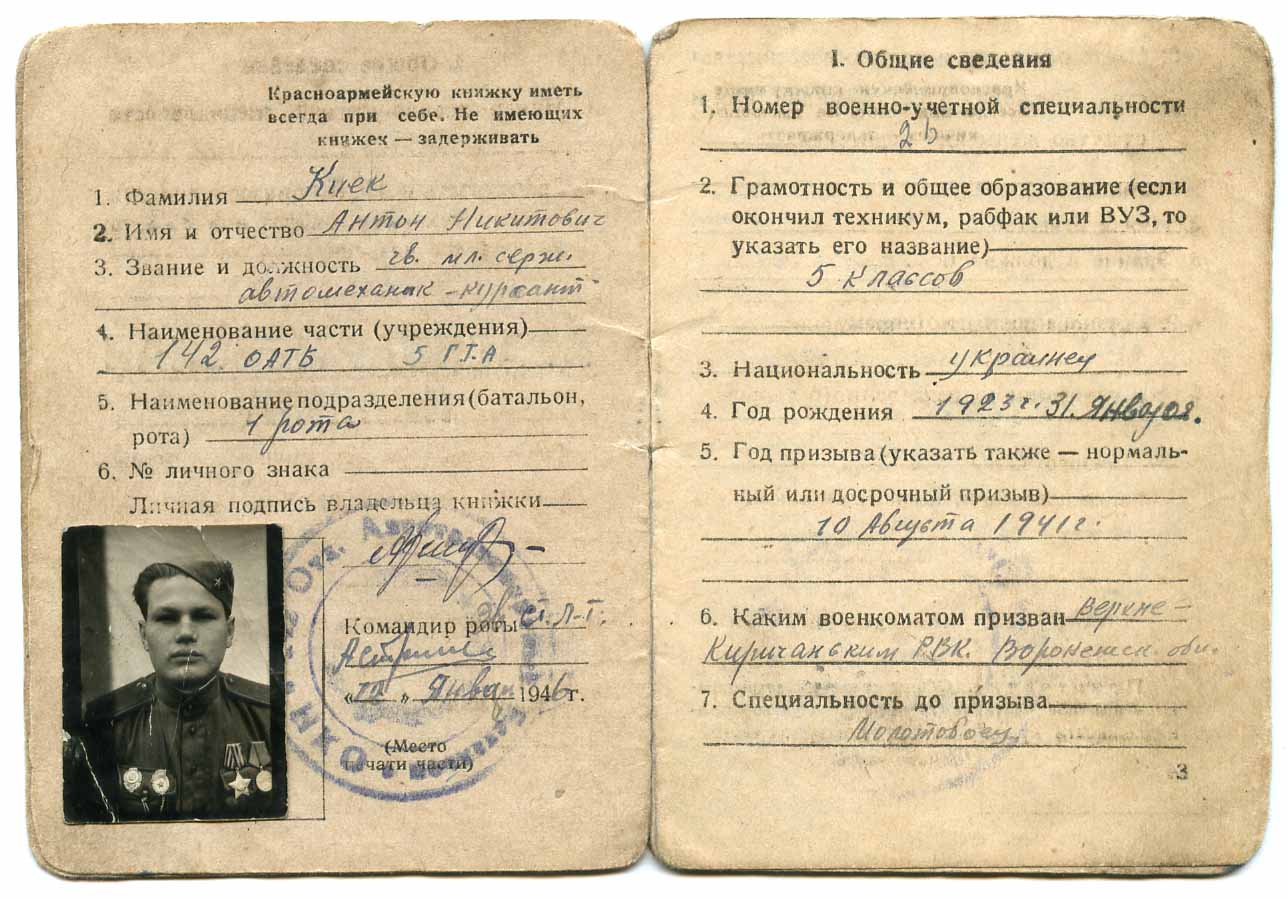 Красноармейскую книжку иметь
всегда при себе. Не имеющих
книжек — задерживать
1. Фамилия Киек
2. Имя и отчество Антон Никитович
3. Звание и должность гв. мл. серж.
автомеханик-курсант
4. Наименование части (учреждения)
142 ОАТБ 5 Г.Т.А
5. Наименование подразделения (батальон,
рота) 1 рота
6. № личного знака
Личная подпись владельца книжки
Командир роты ст. л-т.
" Январ 1946 г.
(Место
печати части)
I. Общие сведения
1. Номер военно-учетной специальности
26
2. Грамотность и общее образование (если
окончил техникум, рабфак или ВУЗ, то
указать его название)
5 классов
3. Национальность украинец
4. Год рождения 1923 г. 31. Января.
5. Год призыва (указать также — нормаль-
ный или досрочный призыв)
10 Августа 1941 г.
6. Каким военкоматом призван Верхне-
РВК. Воронежск. обл.
7. Специальность до призыва
3